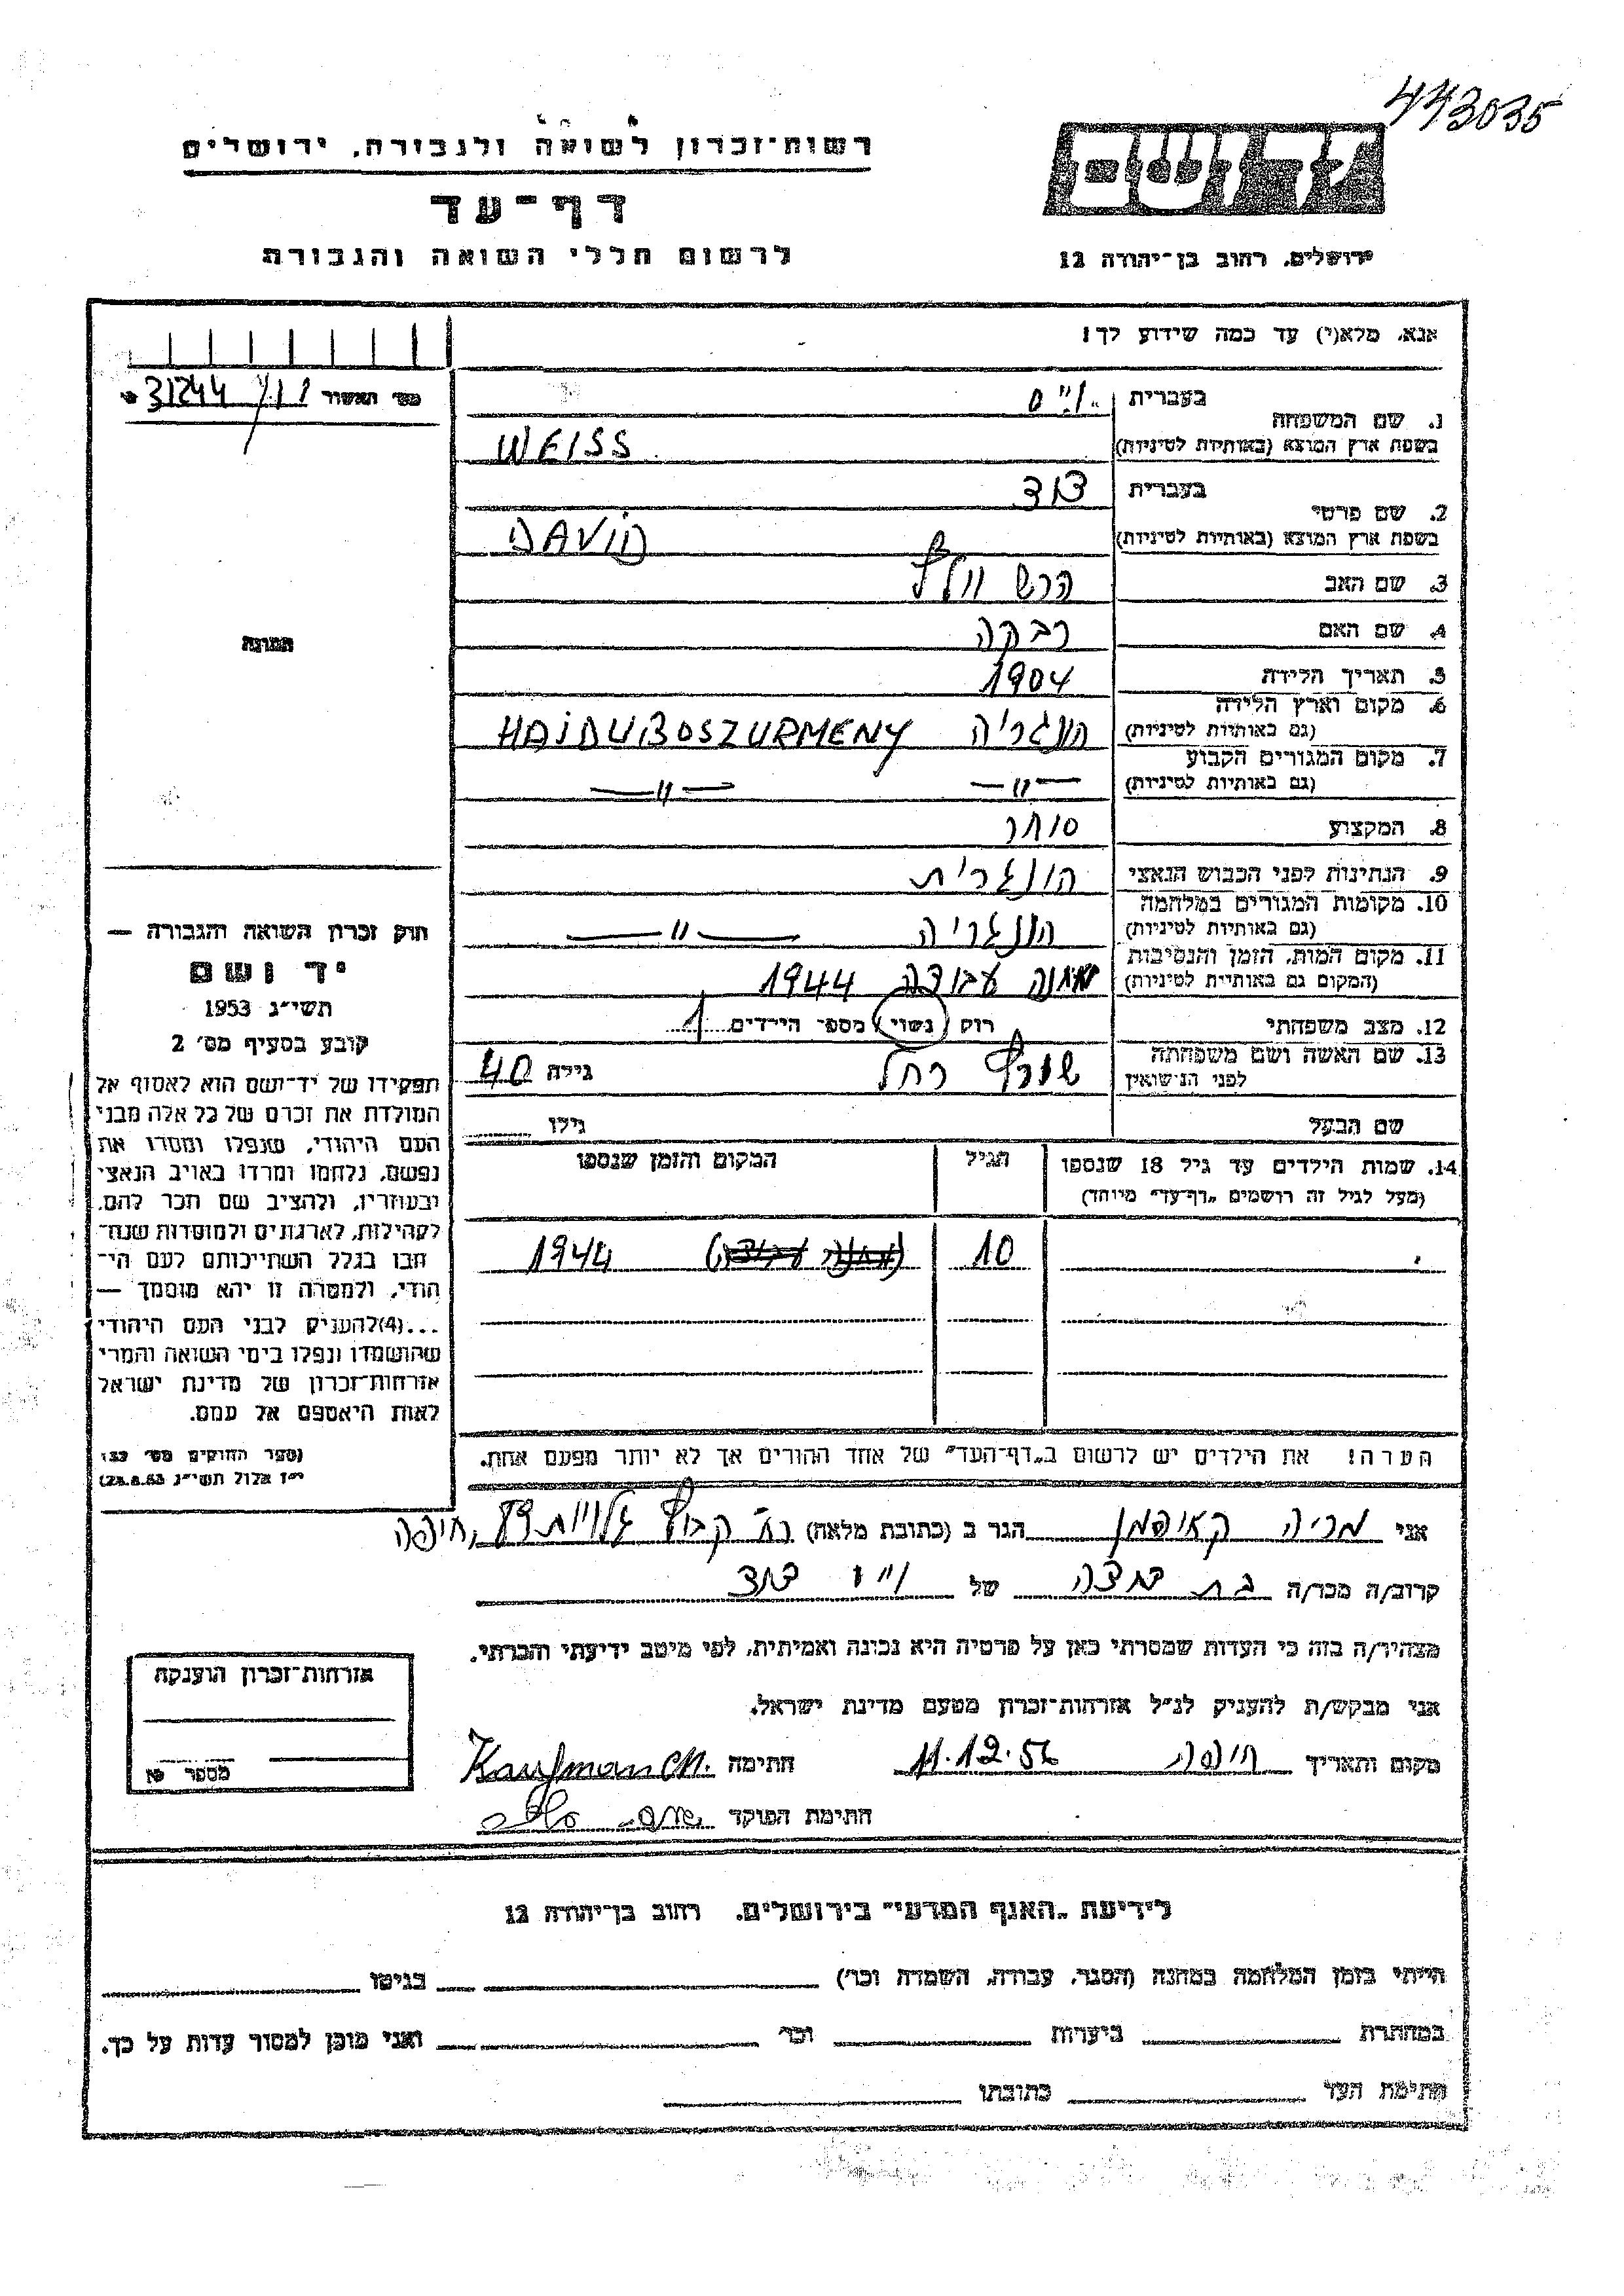 443035
רשות־זכרון לשואה ולגבורה, ירושלים
יד ושם
דף־עד
לרשום חללי השואה והגבורה
ירושלים, רחוב בן־יהודה 12
אנא, מלא(י) עד כמה שידוע לך!
מס' האשור 31244
1. שם המשפחה
בעברית וייס
בשפת ארץ המוצא (באותיות לטיניות) WEISS
2. שם פרטי
בעברית דוד
בשפת ארץ המוצא (באותיות לטיניות) DAVID
3. שם האב הרש וולף
4. שם האם רבקה
5. תאריך הלידה 1904
6. מקום וארץ הלידה
(גם באותיות לטיניות) הונגריה HAIDUBOSZURMENY
7. מקום המגורים הקבוע
(גם באותיות לטיניות) —"— —"—
8. המקצוע סוחר
9. הנתינות לפני הכבוש הנאצי הונגרית
10. מקומות המגורים במלחמה
(גם באותיות לטיניות) הונגריה —"—
11. מקום המות, הזמן והנסיבות
(המקום גם באותיות לטיניות) מחנה עבודה 1944
12. מצב משפחתי רוק (נשוי) מספר הילדים 1
13. שם האשה ושם משפחתה
לפני הנישואין רחל גילה 40
שם הבעל גילו
14. שמות הילדים עד גיל 18 שנספו
(מעל לגיל זה רושמים „דף־עד" מיוחד)
הגיל
המקום והזמן שנספו
10 1944
הערה! את הילדים יש לרשום ב„דף־העד" של אחד ההורים אך לא יותר מפעם אחת.
התמונה
חוק זכרון השואה והגבורה —
יד ושם
תשי"ג 1953
קובע בסעיף מס' 2
תפקידו של יד־ושם הוא לאסוף אל
המולדת את זכרם של כל אלה מבני
העם היהודי, שנפלו ומסרו את
נפשם, נלחמו ומרדו באויב הנאצי
ובעוזריו, ולהציב שם וזכר להם,
לקהילות, לארגונים ולמוסדות שנח־
רבו בגלל השתייכותם לעם הי־
הודי, ולמטרה זו יהא מוסמך —
...(4)להעניק לבני העם היהודי
שהושמדו ונפלו בימי השואה והמרי
אזרחות־זכרון של מדינת ישראל
לאות היאספם אל עמם.
(ספר החוקים מס' 132
י"ז אלול תשי"ג 28.8.53)
אני מריה קאופמן הגר ב (כתובת מלאה) רח' קבוץ גלויות, חיפה
קרוב/ה מכר/ה בת דודה של וייס דוד
מצהיר/ה בזה כי העדות שמסרתי כאן על פרטיה היא נכונה ואמיתית, לפי מיטב ידיעתי והכרתי.
אני מבקש/ת להעניק לנ"ל אזרחות־זכרון מטעם מדינת ישראל.
מקום ותאריך חיפה 11.12.56 חתימה Kaufman M.
חתימת הפוקד
אזרחות־זכרון הוענקה
מספר
לידיעת „האגף המדעי" בירושלים. רחוב בן־יהודה 12
הייתי בזמן המלחמה במחנה (הסגר, עבודה, השמדה וכו') בגיטו
במחתרת ביערות וכו' ואני מוכן למסור עדות על כך.
חתימת העד כתובתו